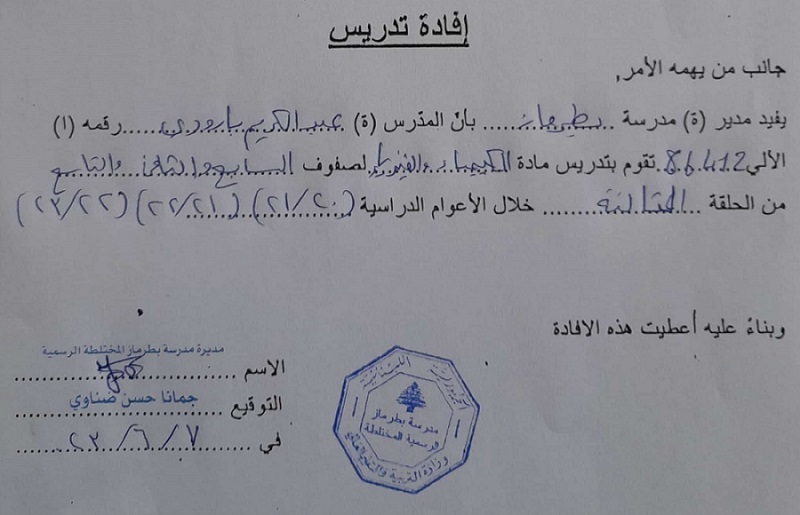 إفادة تدريس
جانب من يهمه الأمر,
يفيد مدير (ة) مدرسة ..بطرماز..... بأنّ المدّرس (ة) عبد الكريم بارودي......رقمه (ا)
الألي 86412. تقوم بتدريس مادة الكيمياء والفيزياء لصفوف السابع والثامن والتاسع
من الحلقة ...الثالثة............ خلال الأعوام الدراسية (٢١/٢٠) (٢٢/٢١) (٢٣/٢٢)
وبناءً عليه أعطيت هذه الافادة
مديرة مدرسة بطرماز المختلطة الرسمية
الاسم ..............................
التوقيع جمانا حسن ضناوي
في ....٢٣/٦/٧....
الجمهورية اللبنانية
مدرسة بطرماز
الرسمية المختلطة
وزارة التربية والتعليم العالي